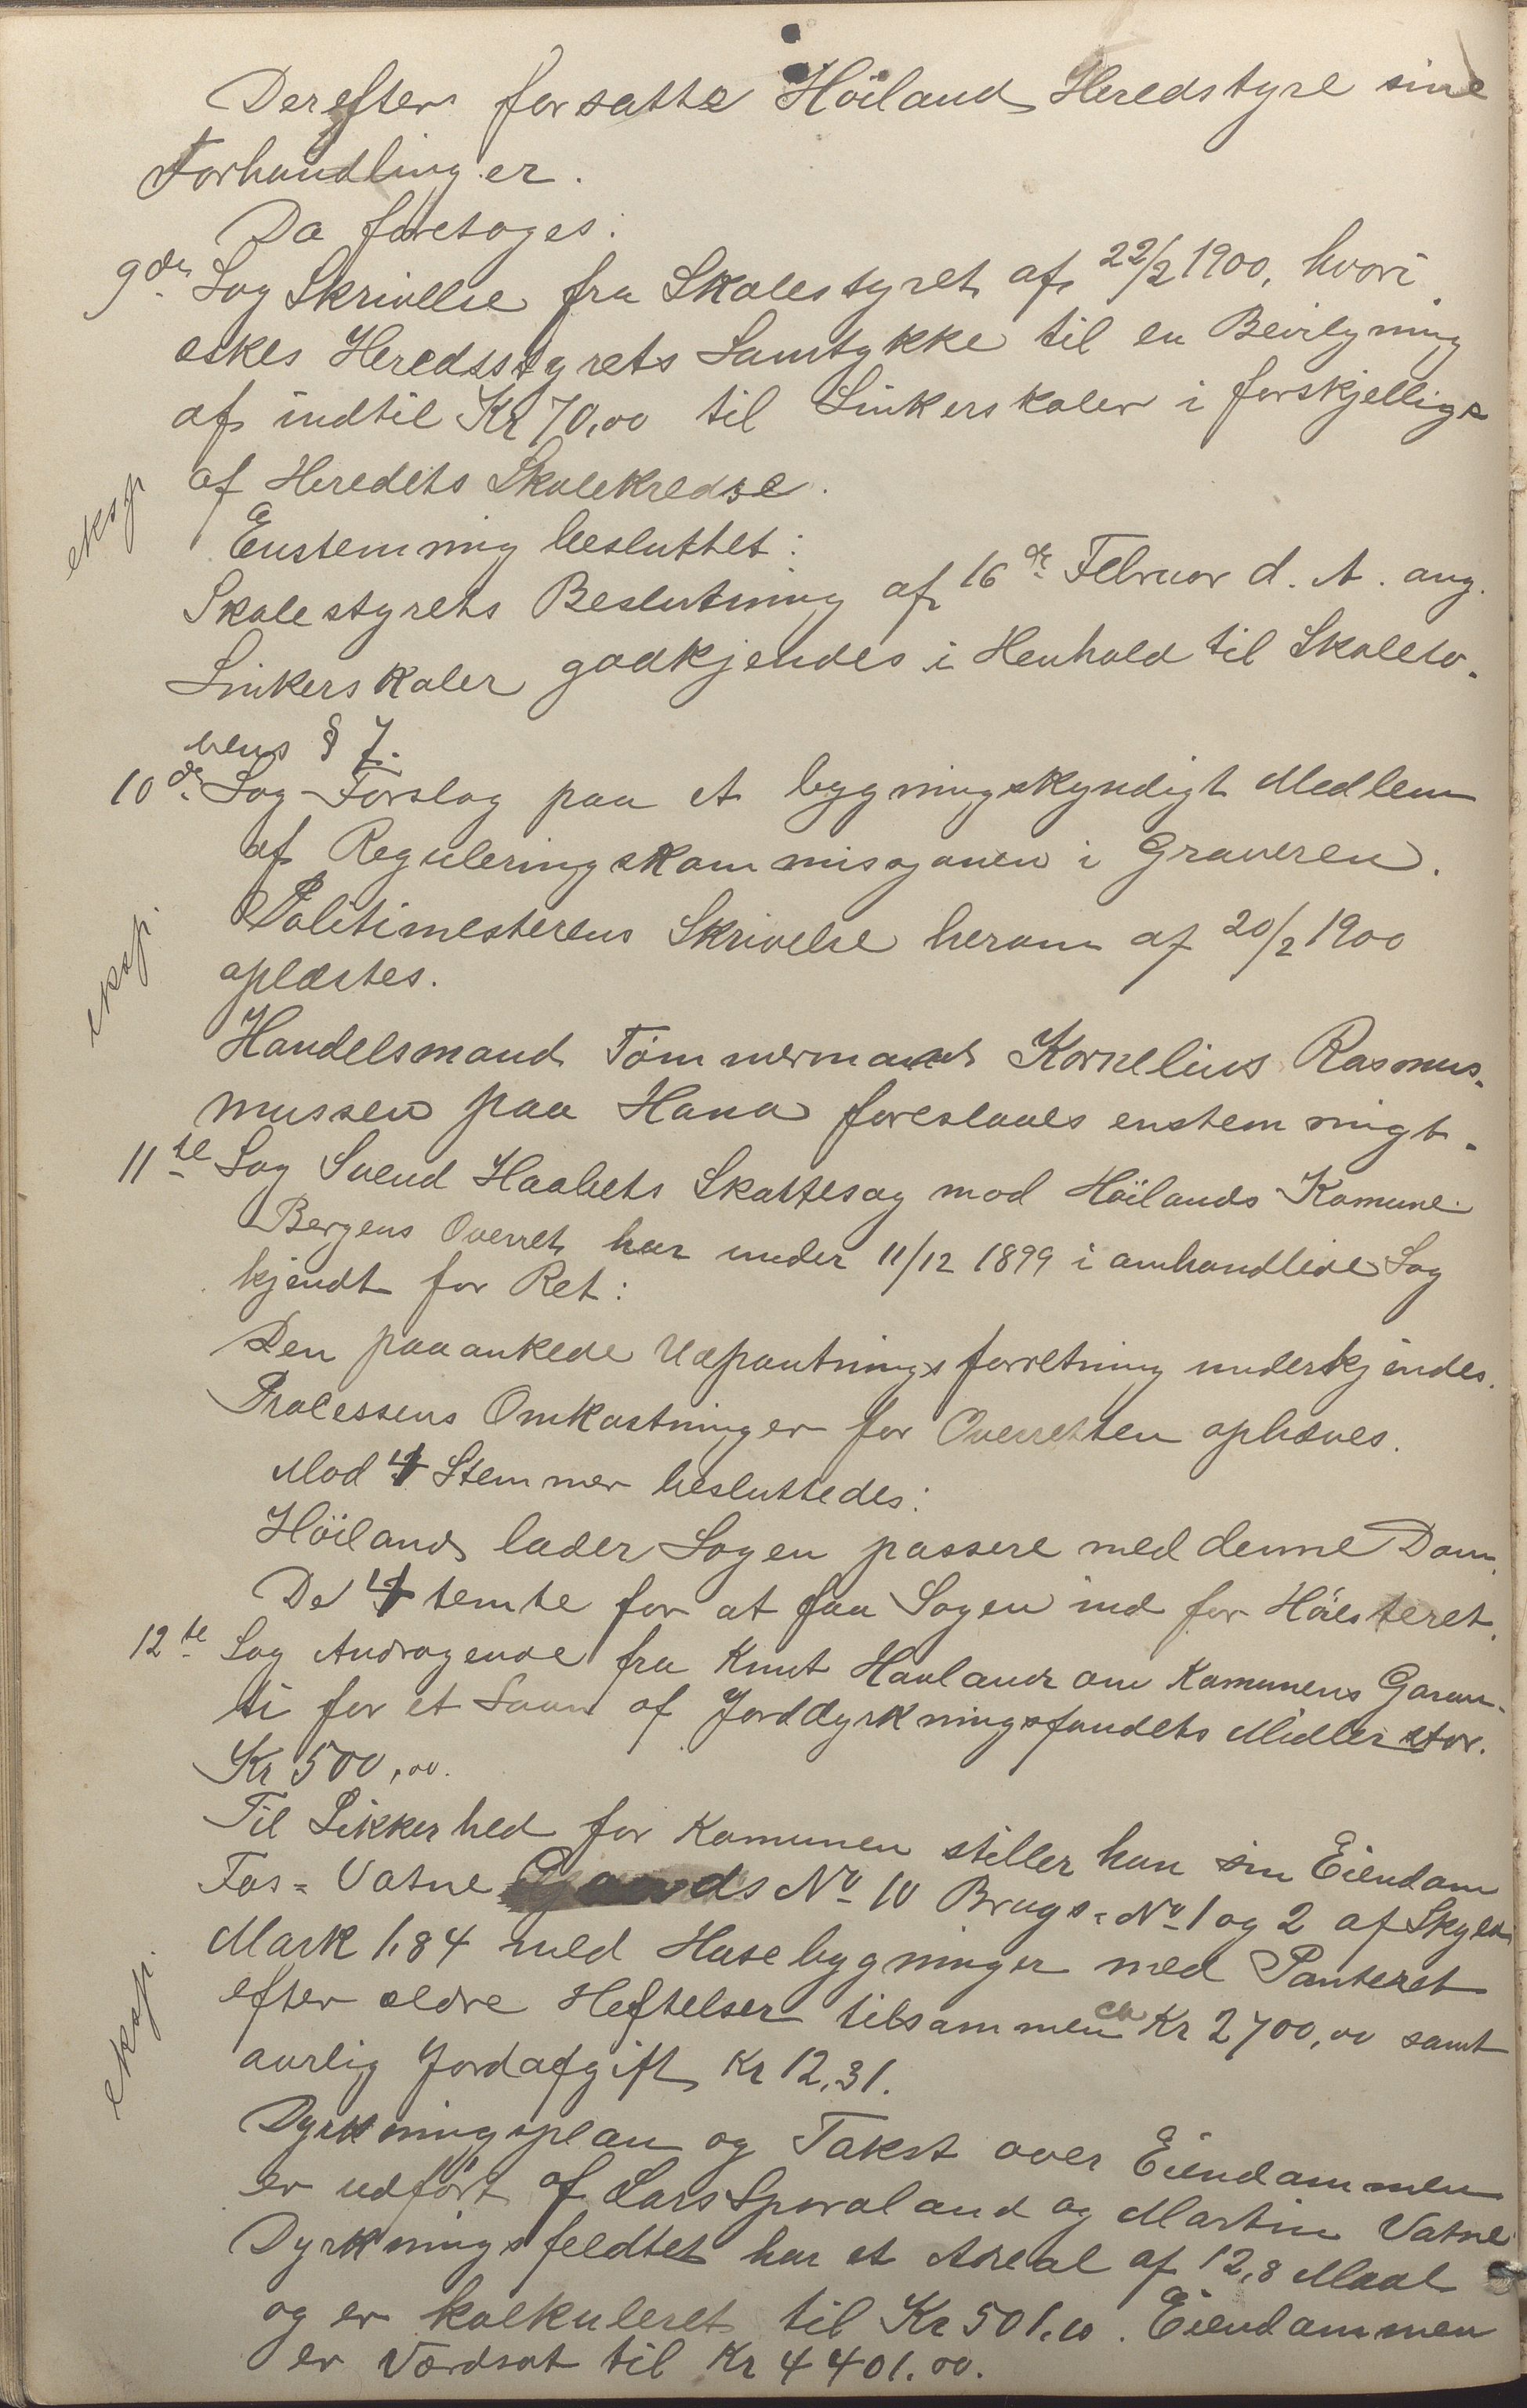 Derefter forsatte Höiland Heredstyre sine
Forhandlinger.
Da foretoges:
9de Sag Skrivelse fra Skolestyret af 22/2 1900, hvori
eskes Heredsstyrets Samtykke til en Bevilgning
af indtil Kr 70,00 til Sinkerskoler i forskjellige
af Heredets Skolekredse.
eksp
Enstemmig besluttet:
Skolestyrets Beslutning af 16de Februar d. A. ang.
Sinkerskoler godkjendes i Henhold til Skolelo-
vens § 7.
10de Sag Forslag paa et bygningskyndigt Medlem
af Reguleringskommisjonen i Graveren.
Politimesterens Skrivelse herom af 20/2 1900
oplæstes.
eksp.
Handelsmand Tömmermand Kornelius Rasmus-
mussen paa Hana foreslaaes enstemmigt.
11te Sag Svend Haabets Skattesag mod Höilands Komune.
Bergens Overret har under 11/12 1899 i omhandlede Sag
kjendt for Ret:
Den paaankede Udpantningsforretning underkjendes.
Processens Omkostninger for Overretten ophæves.
Mod 4 Stemmer besluttedes:
Höiland lader Sagen passere med denne Dom.
De 4 temte for at faa Sagen ind for Höiesteret.
12te Sag Andragende fra Knut Havland om Kommunens Garan-
ti for et Laan af Jorddyrkningsfondets Midler stor.
Kr 500,00.
Til Sikkerhed for Komunen stiller han sin Eiendom
Fos-Vatne Gaards No 10 Brugs-No 1 og 2 af Skyld
Mark 1,84 med Husebygninger med Panteret
efter ældre Heftelser tilsammen ca Kr 2700,00 samt
aarlig Jordafgift Kr 12,31.
eksp.
Dyrkningsplan og Takst over Eiendommen
er udfört af Lars Sporaland og Martin Vatne
Dyrkningsfeldtet har et Areal af 12,8 Maal
og er kalkuleret til Kr 501,10. Eiendommen
er Værdsat til Kr 4401.00.